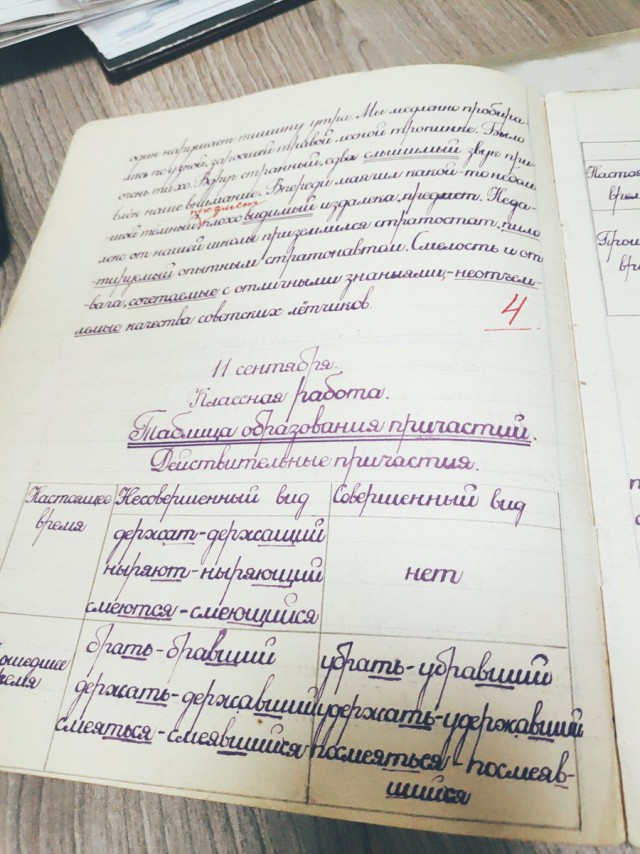 один нарушает тишину утра. Мы медленно пробира-
лись по узкой, заросшей травой лесной тропинке. Было
очень тихо. Вдруг странный, едва слышимый звук при-
влёк наше внимание. Впереди маячил какой-то неболь
шой тёмный, плохо видимый издалека, предмет. Неда-
предмет
леко от нашей школы приземлился стратостат, пило
тируемый опытным стратонавтом. Смелость и от
вага, сочетаемые с отличными знаниями, - неотъем-
лемые качества советских лётчиков.
4
11 сентября.
Классная работа.
Таблица образования причастий.
Действительные причастия.
Настоящее время
Несовершенный вид
Совершенный вид
держат - держащий
ныряют - ныряющий
смеются - смеющийся
нет
ошедшее
ремя
брать - бравший
держать - державший
смеяться - смеявшийся
убрать - убравший
удержать - удержавший
посмеяться - посмеяв-
шийся
Настоя
врем
Прош
вре